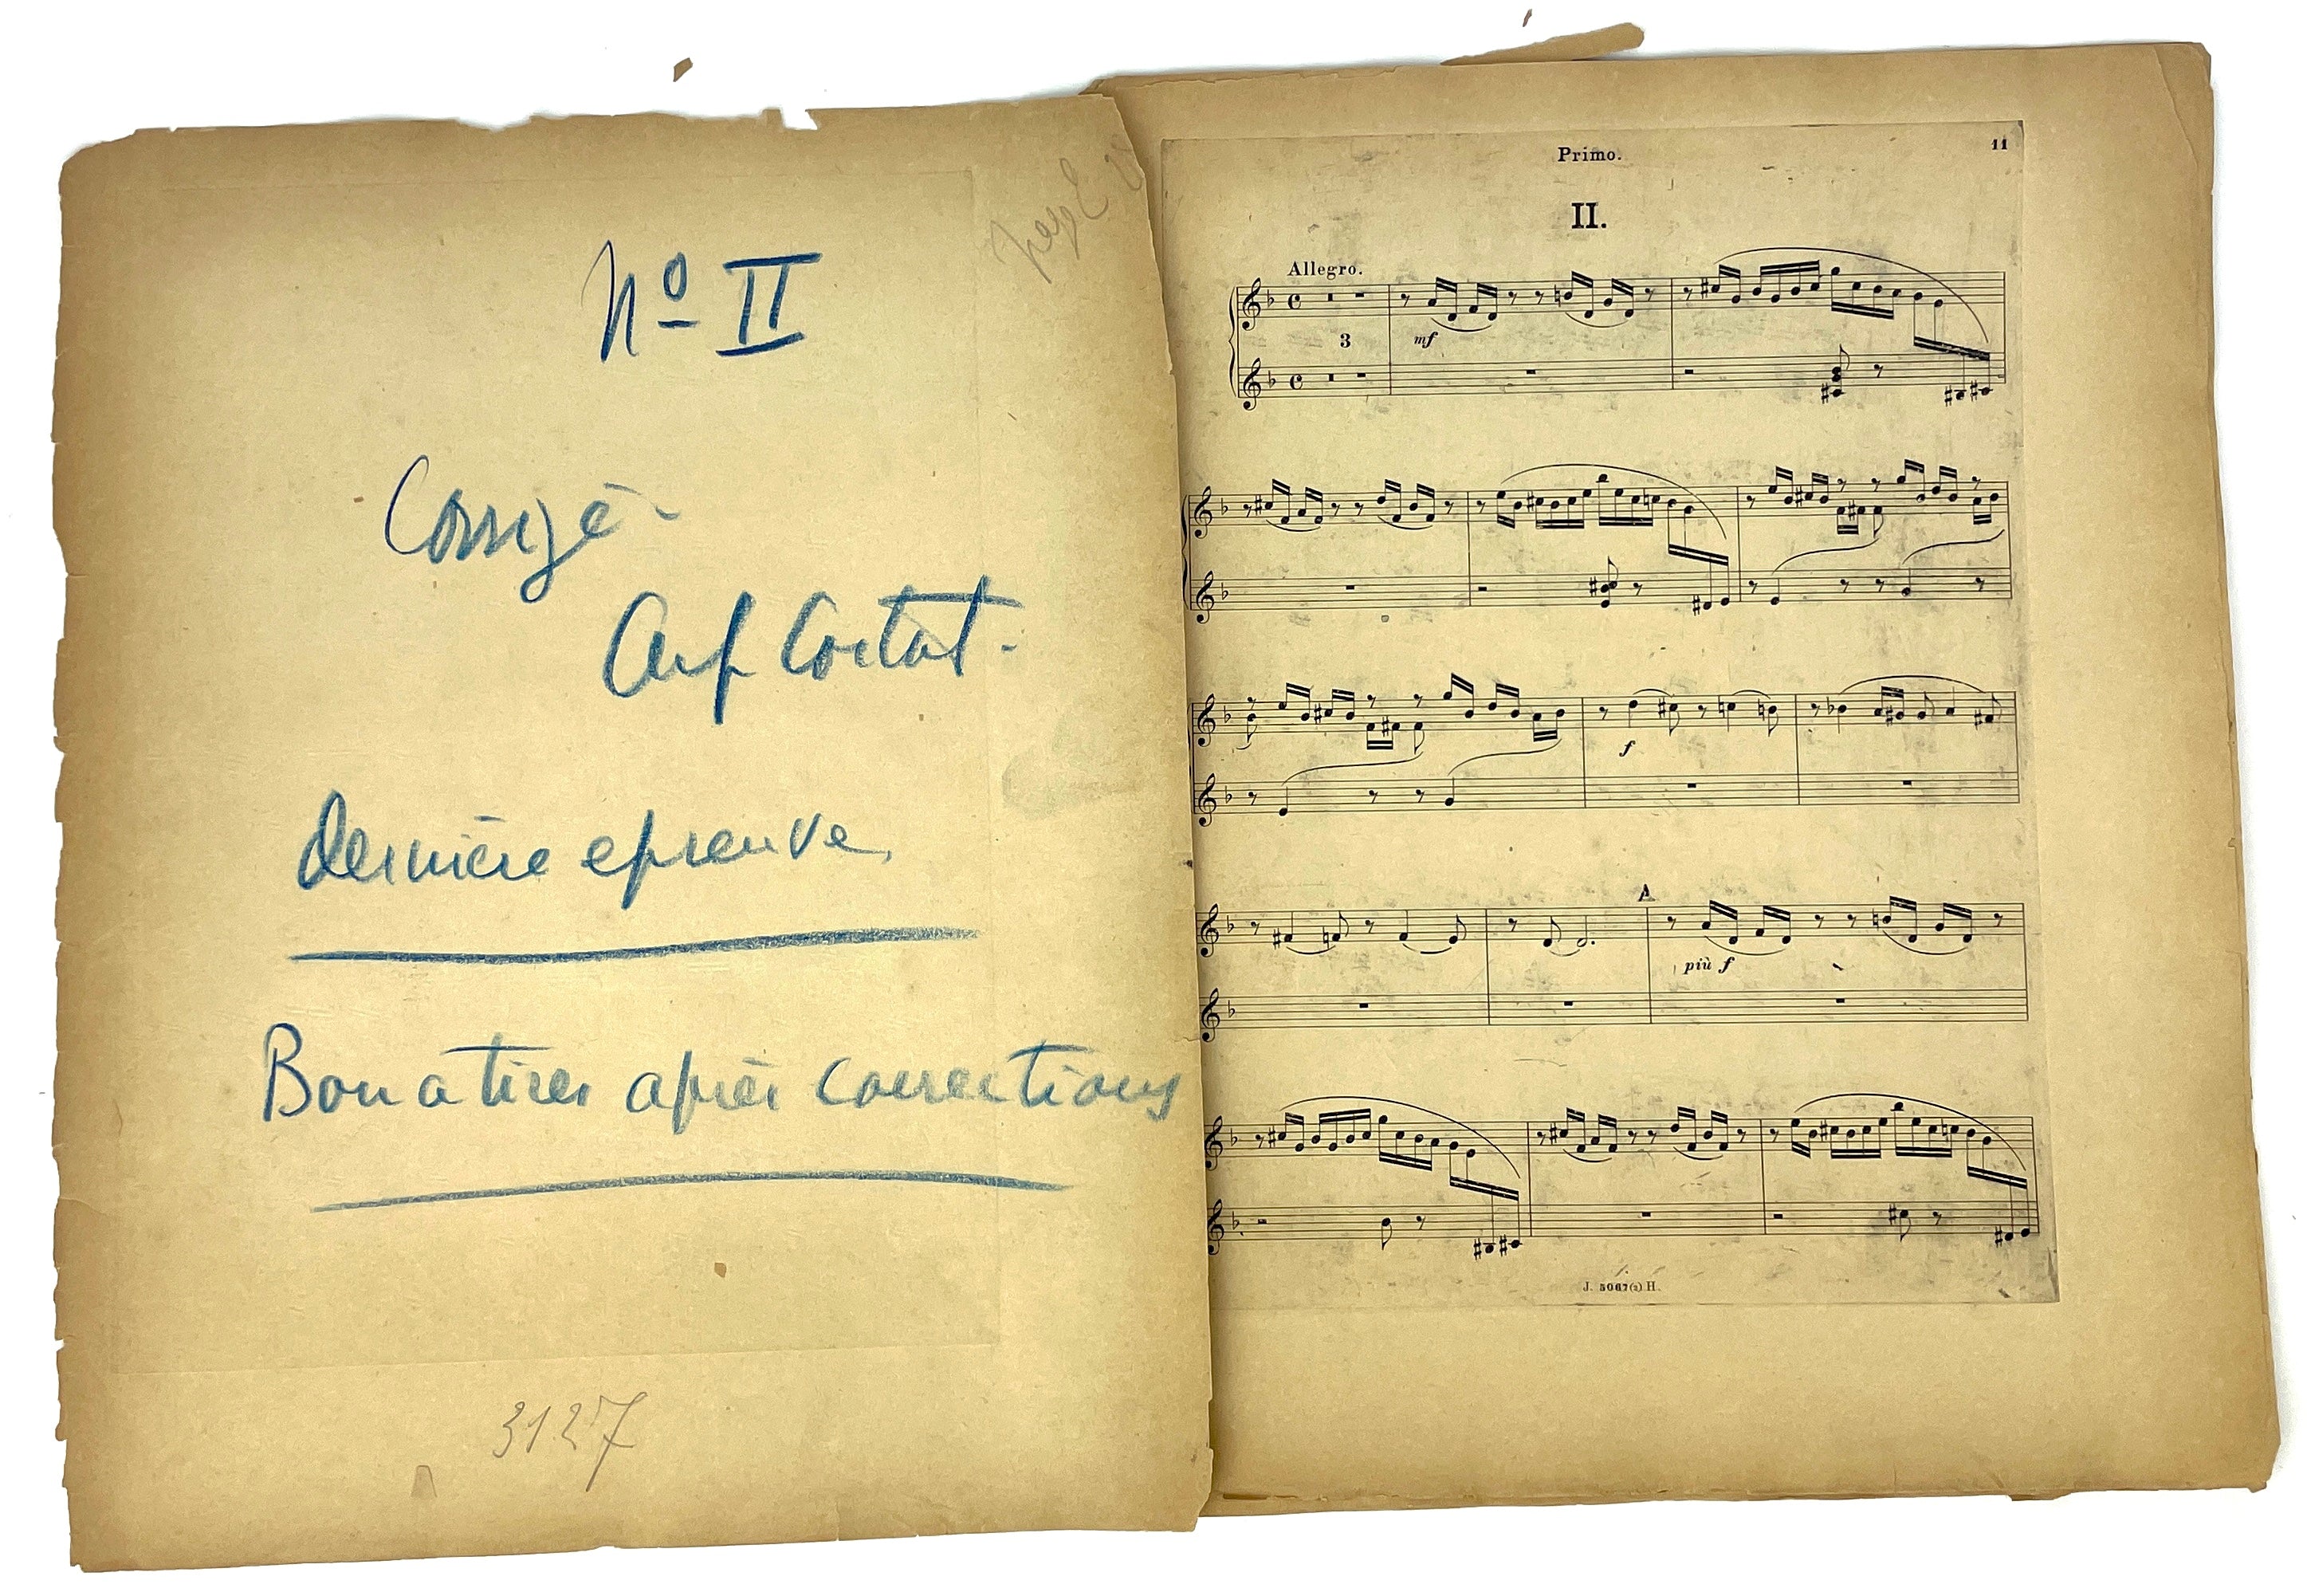 No II
Corrigé -
Cortot -
dernière epreuve.
Bon a tirer après corrections
3127
Primo.
11
II.
Allegro.
3
mf
f
A
più f
J. 5067(2) H.